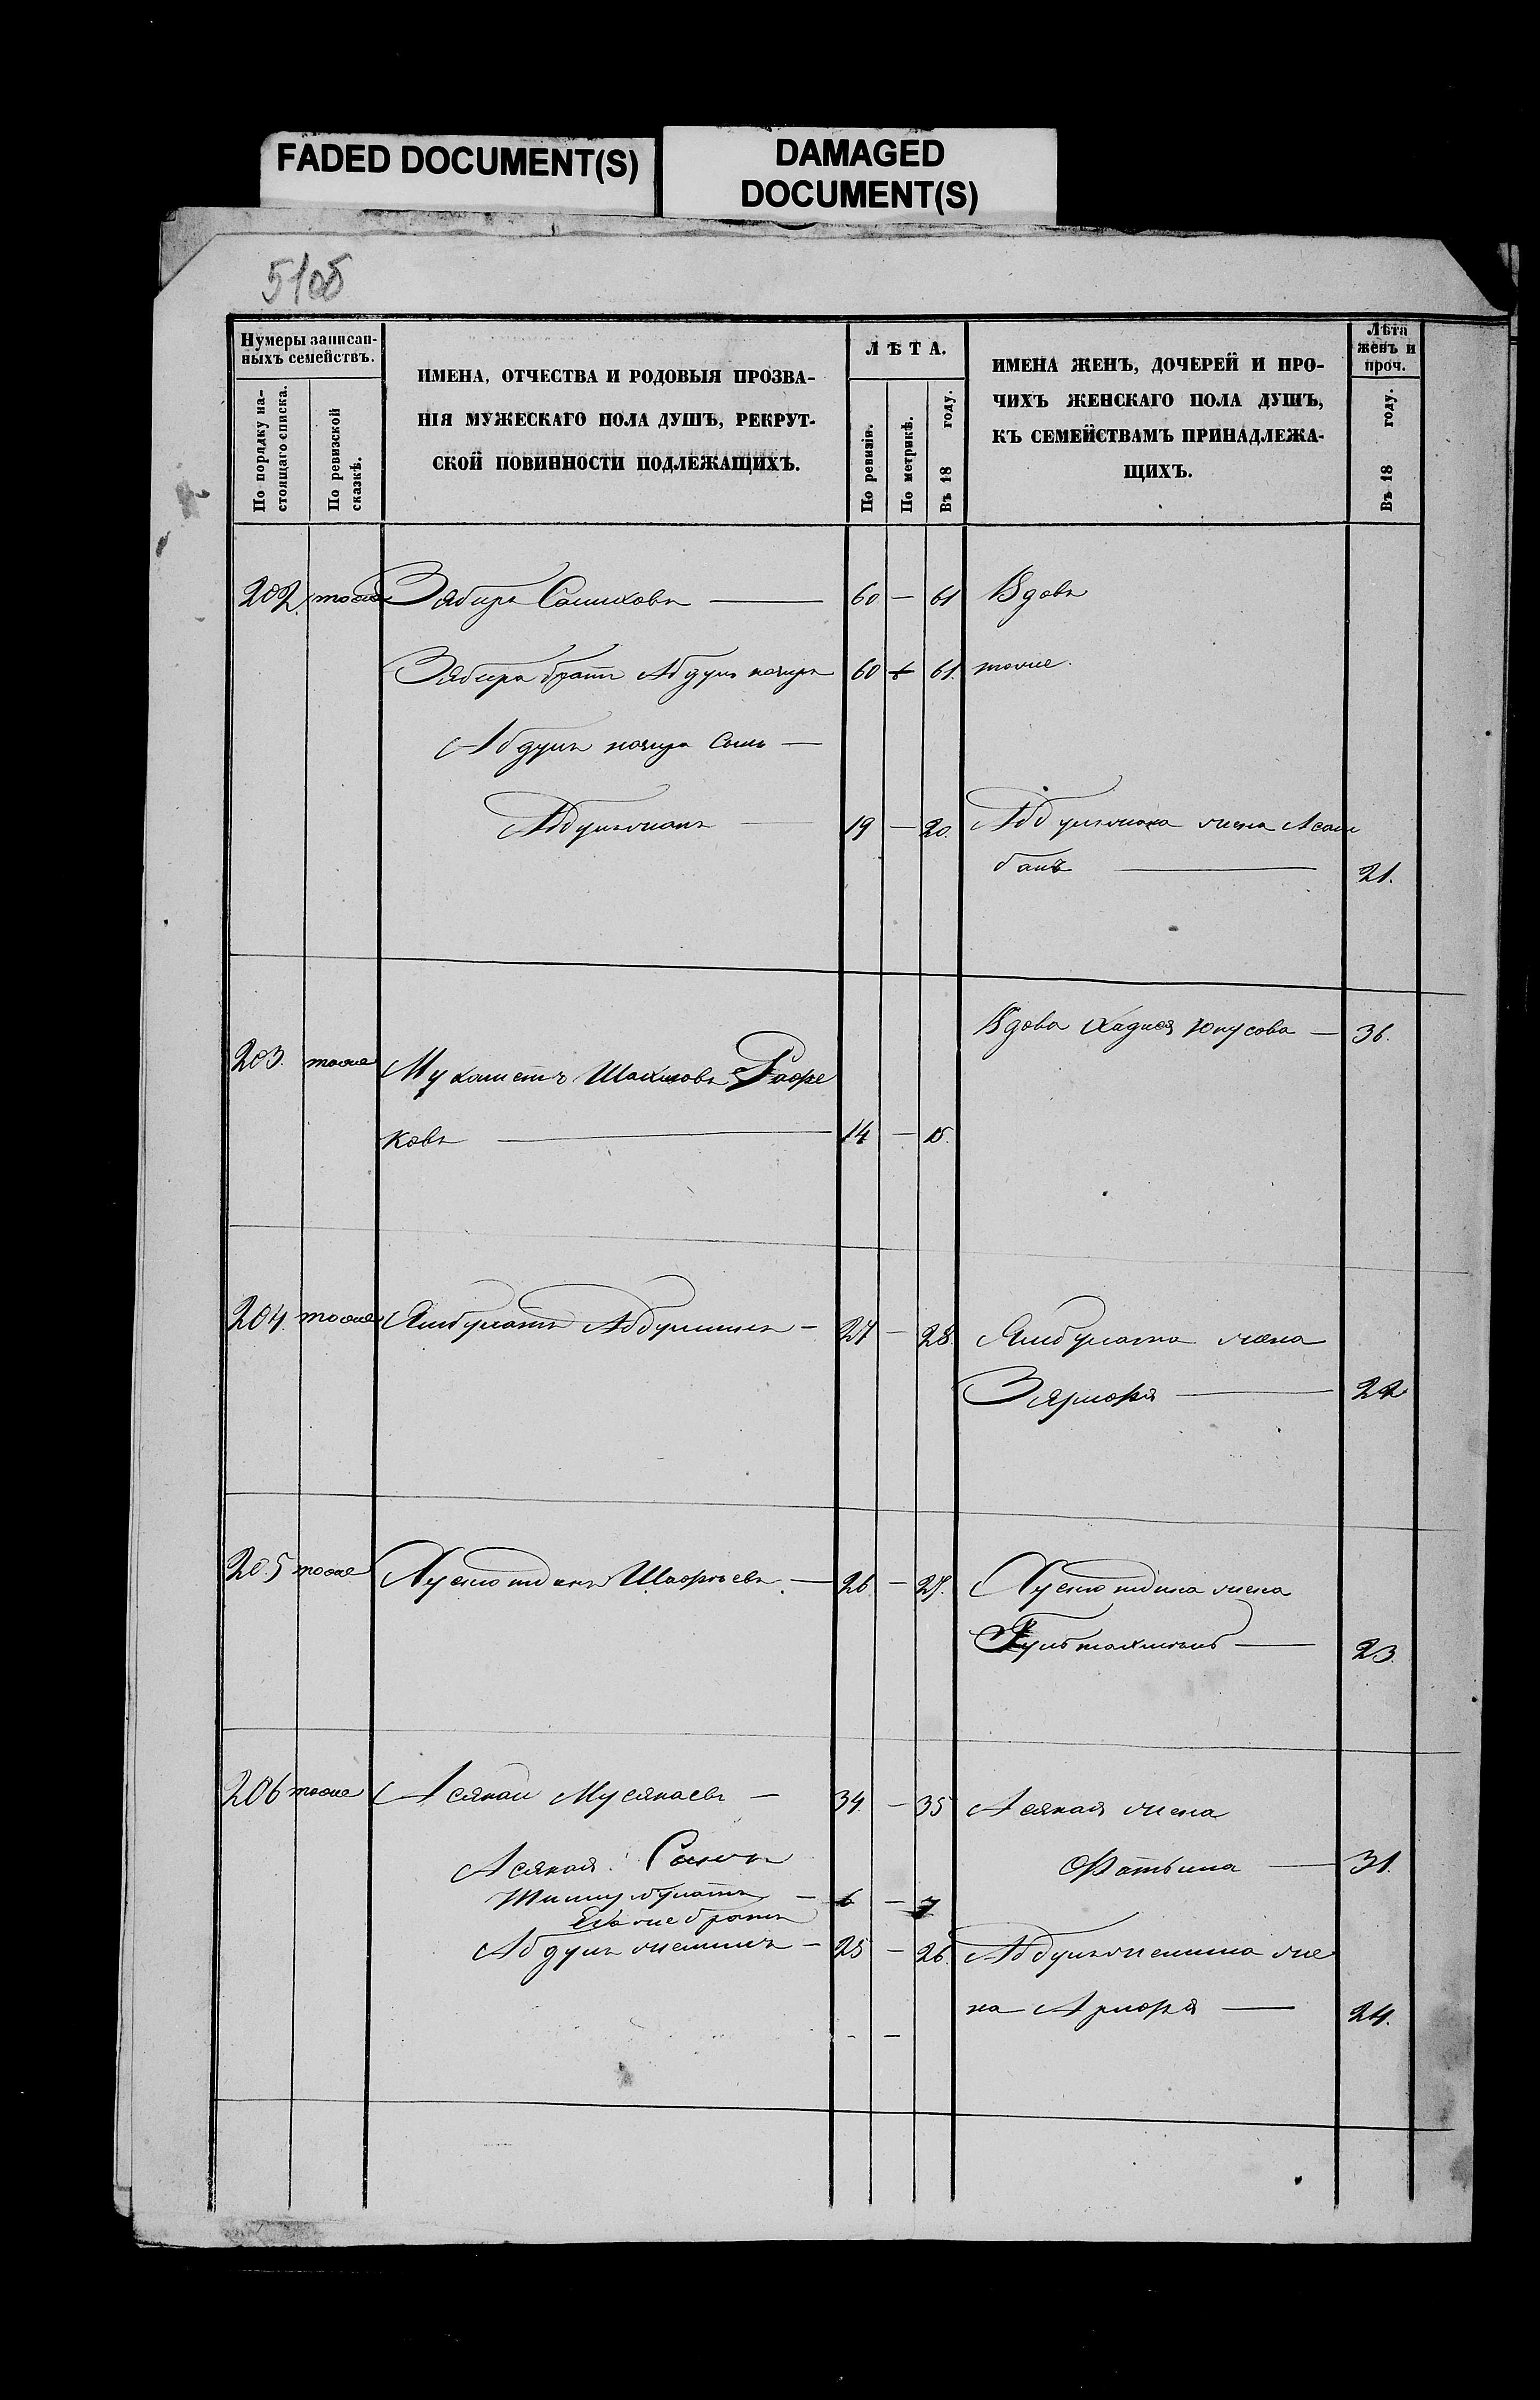 FADED DOCUMENT(S)
DAMAGED
DOCUMENT(S)
51об
Нумеры записан-
ныхъ семействъ.
По порядку на-
стоящаго списка.
По ревизской
сказкѣ.
ИМЕНА, ОТЧЕСТВА И РОДОВЫЯ ПРОЗВА-
НІЯ МУЖЕСКАГО ПОЛА ДУШЪ, РЕКРУТ-
СКОЙ ПОВИННОСТИ ПОДЛЕЖАЩИХЪ.
ЛѢТА.
По ревизіи.
По метрикѣ.
Въ 18 году.
ИМЕНА ЖЕНЪ, ДОЧЕРЕЙ И ПРО-
ЧИХЪ ЖЕНСКАГО ПОЛА ДУШЪ,
КЪ СЕМЕЙСТВАМЪ ПРИНАДЛЕЖА-
ЩИХЪ.
Лѣта
женъ и
проч.
Въ 18 году.
202. тоже Зябиръ Салиховъ — 60 — 61 Вдовъ
Зябира братъ Абдулъ 60 61. тоже.
Абдулъ сынъ —
Абдулжанъ — 19 — 20. Абдулжана жена
банъ — 21.
Вдова Хадися Юнусова — 36.
203. тоже Мухаметъ Шахмовъ Рафи
ковъ — 14 — 15.
204. тоже Ямбулатъ Абдулинъ — 27 — 28. Ямбулата жена
Зялифа — 22
205 тоже Хуснютдинъ Шафѣевъ — 26 — 27. Хуснютдина жена
Гульжихянъ — 23.
206 тоже Асякай Мусякаевъ — 34. — 35 Асякая жена
Асякая Сынъ
Фатьима — 31.
Тимирбулатъ — 6 — 7
Его же братъ
Абдулъ — 25 — 26. же
на — 24.